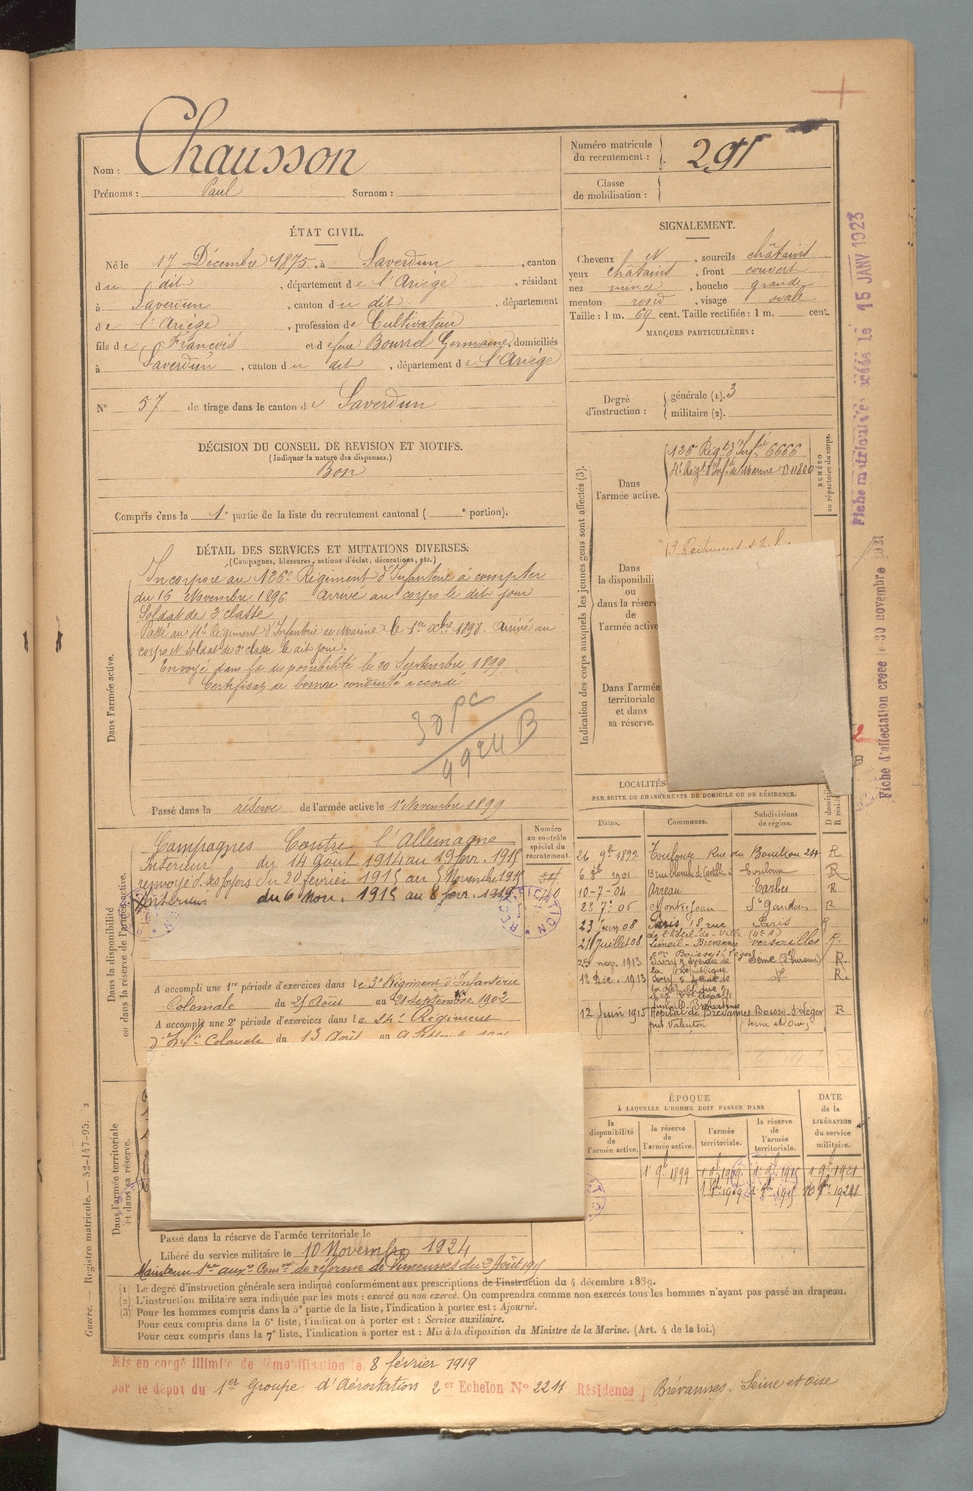 Nom : Chausson
Prénoms : Paul Surnom :
Numéro matricule du recrutement : 291
Classe de mobilisation :
ÉTAT CIVIL.
Né le 17 Décembre 1875, à Saverdun, canton
du dit, département de l'Ariège, résidant
à Saverdun, canton du dit, département
de l'Ariège, profession de Cultivateur
fils de François et de feue Bourrel Germaine, domiciliés
à Saverdun, canton du dit, département de l'Ariège
N° 57 de tirage dans le canton de Saverdun
SIGNALEMENT.
Cheveux N, sourcils châtains
yeux châtains, front couvert
nez mince, bouche grande
menton rond, visage ovale
Taille : 1 m. 64 cent. Taille rectifiée : 1 m. cent.
MARQUES PARTICULIÈRES :
Degré d'instruction : générale (1). 3
militaire (2).
DÉCISION DU CONSEIL DE REVISION ET MOTIFS.
(Indiquer la nature des dispenses.)
Bon
Compris dans la 1e partie de la liste du recrutement cantonal ( e portion).
DÉTAIL DES SERVICES ET MUTATIONS DIVERSES.
(Campagnes, blessures, actions d'éclat, décorations, etc.)
Dans l'armée active.
Incorporé au 126e Régiment d'Infanterie à compter
du 16 Novembre 1896. Arrivé au corps le dit jour
Soldat de 2e classe
Passé au 4e Régiment d'Infanterie de Marine le 1er Xbre 1897. Arrivé au
corps et soldat de 2e classe le dit jour.
Envoyé dans la disponibilité le 20 Septembre 1899
Certificat de bonne conduite accordé
Passé dans la réserve de l'armée active le 1er Novembre 1899
Indication des corps auxquels les jeunes gens sont affectés (3).
Dans l'armée active.
126 Régt d'Infie 6666
4e Régt d'Infie de Marine
NUMÉRO au répertoire du corps.
Dans la disponibili
ou
dans la réserv
de
l'armée active
Dans l'armée
territoriale
et dans
sa réserve.
LOCALITÉS
PAR SUITE DE CHANGEMENTS DE DOMICILE OU DE RÉSIDENCE.
Dates. Communes. Subdivisions de région.
1901 Toulouse
10-7-04 Arreau Tarbes R
Montrejeau St Gaudens R
23 Juin 08 Paris, 18, rue Paris R
de l'Hôtel-de-Ville
21 Juillet 08 Limeil-Brévannes Versailles R
25 nov. 1913 R.
12 Déc. 1913 R
12 Juin 1915 Hôpital de Brévannes Boissy-St-Léger R
par Valenton (Seine et Oise)
Dans la disponibilité ou dans la réserve de l'armée active.
Campagnes Contre l'Allemagne
Intérieur du 14 août 1914 au 19 fevr. 1915
renvoyé ds ses foyers du 20 février 1915 au 5 Novembre 1915
Intérieur du 6 Nov. 1915 au 8 fevr. 1919
Numéro au contrôle spécial du recrutement.
A accompli une 1re période d'exercices dans le 3e Régiment d'Infanterie
Coloniale du 25 Août au 21 septembre 1902
A accompli une 2e période d'exercices dans le 24e Régiment
d'Infie Coloniale du 13 Août au
ÉPOQUE
À LAQUELLE L'HOMME DOIT PASSER DANS
la disponibilité de l'armée active.
la réserve de l'armée active.
l'armée territoriale.
la réserve de l'armée territoriale.
DATE de la LIBÉRATION du service militaire.
Dans l'armée territoriale et dans sa réserve.
Passé dans la réserve de l'armée territoriale le
Libéré du service militaire le 10 Novembre 1924
Maintenu Sce auxre Comon de réforme de Vincennes du 2 Août 1915
(1) Le degré d'instruction générale sera indiqué conformément aux prescriptions de l'instruction du 4 décembre 1889.
(2) L'instruction militaire sera indiquée par les mots : exercé ou non exercé. On comprendra comme non exercés tous les hommes n'ayant pas passé au drapeau.
(3) Pour les hommes compris dans la 5e partie de la liste, l'indication à porter est : Ajourné.
Pour ceux compris dans la 6e liste, l'indication à porter est : Service auxiliaire.
Pour ceux compris dans la 7e liste, l'indication à porter est : Mis à la disposition du Ministre de la Marine. (Art. 4 de la loi.)
Mis en congé illimité de démobilisation le 8 février 1919
par le dépot du 1er Groupe d'Aérostation 2er Echelon No 2211 Résidence Brévannes. Seine et Oise
Guerre. — Registre matricule. — 52-147-95.
Fiche matriculaire créée le 15 JANV 1923
Fiche d'affectation créée le 30 novembre 1921